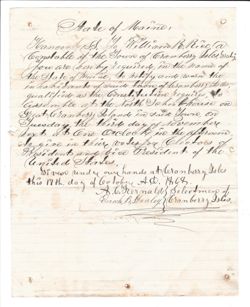 State of Maine,
Hancock Ss. To William P. a
Constable of the Town of Cranberry Isles
You are hereby required in the name of
the State of Maine to notify and warn the
inhabitants of said town of Cranberry Isles
qualified as the Constitution requires to
assemble at the North School house on
Great Cranberry Island in said Town, on
Tuesday the third day of November
next at One O'clock in the afternoon
to give in their votes for Electors of
President and Vice President of the
United States.
Given under our hands at Cranberry Isles
this 17th day of October A.D. 1868
Fernald Selectmen of
Cranberry Isles